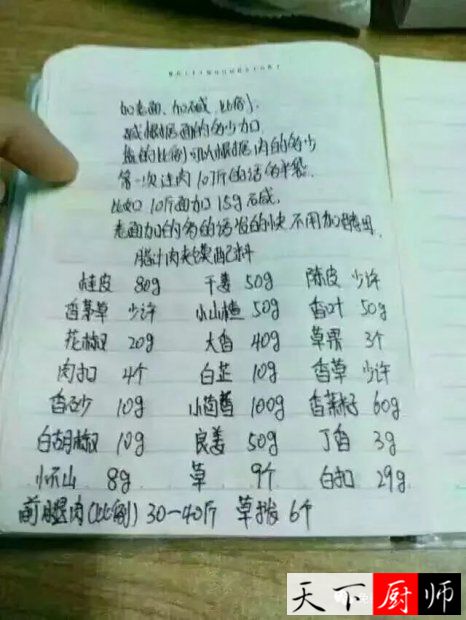 加老面、加碱、比例.
碱根据面的多少加
盐的比例可以根据肉的多少
第一次送肉10斤的话的半袋.
比如10斤面加15g石碱
老面加的多的话发的快不用加酵母.
腊汁肉夹馍配料
桂皮 80g 干姜 50g 陈皮 少许
香茅草 少许 小山楂 50g 香叶 50g
花椒 20g 大香 40g 草果 3个
肉扣 4个 白芷 10g 香草 少许
香砂 10g 小茴香 100g 香菜籽 60g
白胡椒 10g 良姜 50g 丁香 3g
山 8g 草 9个 白扣 29g
前腿肉(比例) 30—40斤 草拨 6个
天下厨师